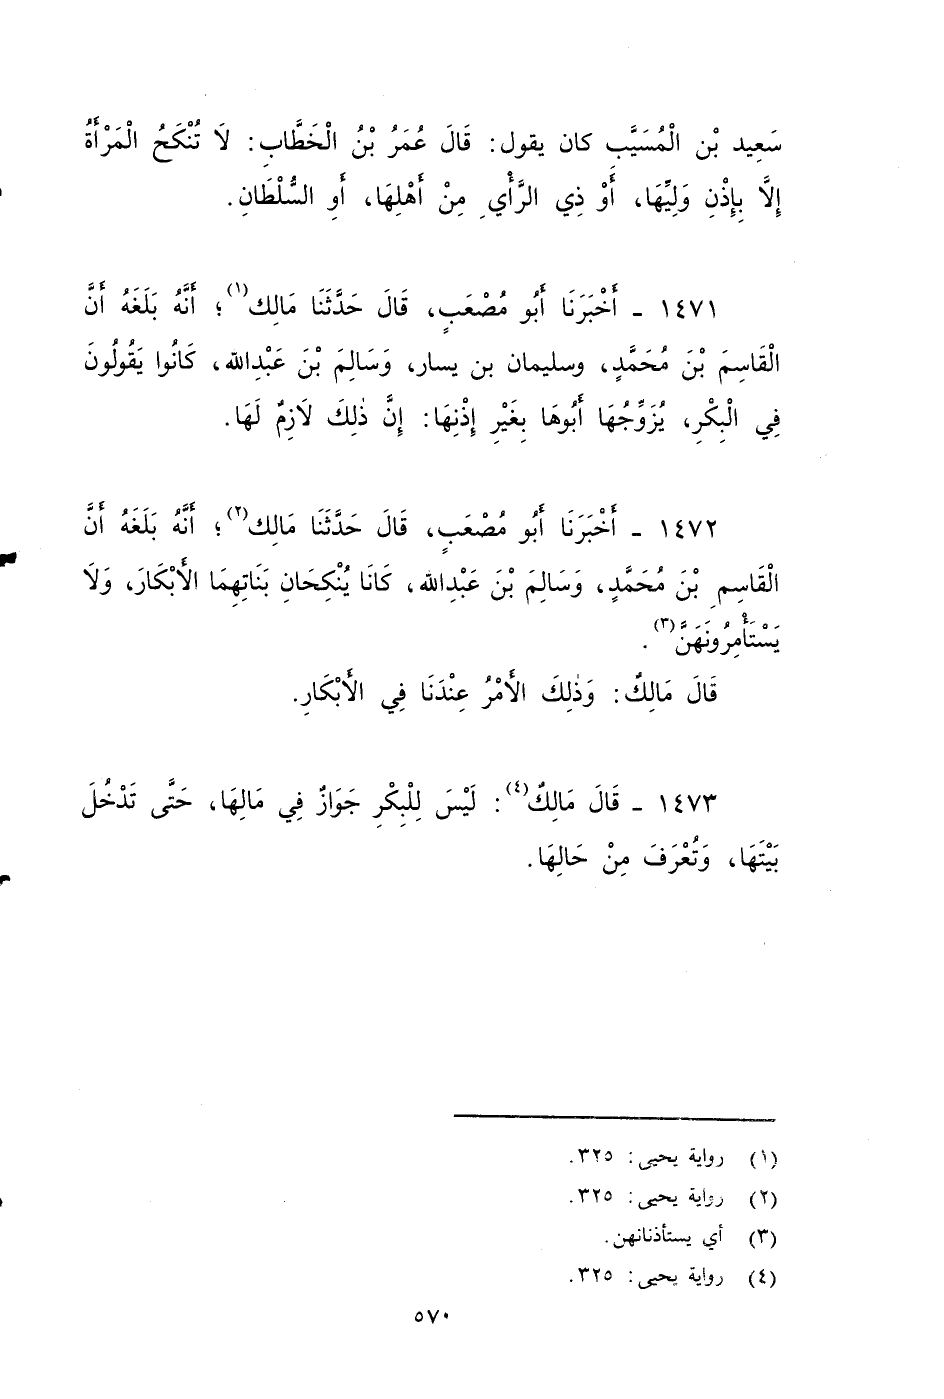 سَعِيد بْن الْمُسَيَّبِ كان يقول: قَالَ عُمَرُ بْنُ الْخَطَّابِ: لَا تُنْكَحُ الْمَرْأَةُ
إِلَّا بِإِذْنِ وَلِيِّهَا، أَوْ ذِي الرَّأْيِ مِنْ أَهْلِهَا، أَوِ السُّلْطَانِ.
١٤٧١ - أَخْبَرَنَا أَبُو مُصْعَبٍ، قَالَ حَدَّثَنَا مَالِك(١)؛ أَنَّهُ بَلَغَهُ أَنَّ
الْقَاسِمَ بْنَ مُحَمَّدٍ، وسليمان بن يسار، وَسَالِمَ بْنَ عَبْدِالله، كَانُوا يَقُولُونَ
فِي الْبِكْرِ، يُزَوِّجُهَا أَبُوهَا بِغَيْرِ إِذْنِهَا: إِنَّ ذٰلِكَ لَازِمٌ لَهَا.
١٤٧٢ - أَخْبَرَنَا أَبُو مُصْعَبٍ، قَالَ حَدَّثَنَا مَالِك(٢)؛ أَنَّهُ بَلَغَهُ أَنَّ
الْقَاسِمِ بْنَ مُحَمَّدٍ، وَسَالِمَ بْنَ عَبْدِالله، كَانَا يُنْكِحَانِ بَنَاتِهِمَا الأَبْكَارَ، وَلَا
يَسْتَأْمِرُونَهَنَّ(٣).
قَالَ مَالِكٌ: وَذٰلِكَ الأَمْرُ عِنْدَنَا فِي الأَبْكَارِ.
١٤٧٣ - قَالَ مَالِكٌ(٤): لَيْسَ لِلْبِكْرِ جَوَازٌ فِي مَالِهَا، حَتَّى تَدْخُلَ
بَيْتَهَا، وَتُعْرَفَ مِنْ حَالِهَا.
(١) رواية يحيى: ٣٢٥.
(٢) رواية يحيى: ٣٢٥.
(٣) أي يستأذنانهن.
(٤) رواية يحيى: ٣٢٥.
٥٧٠